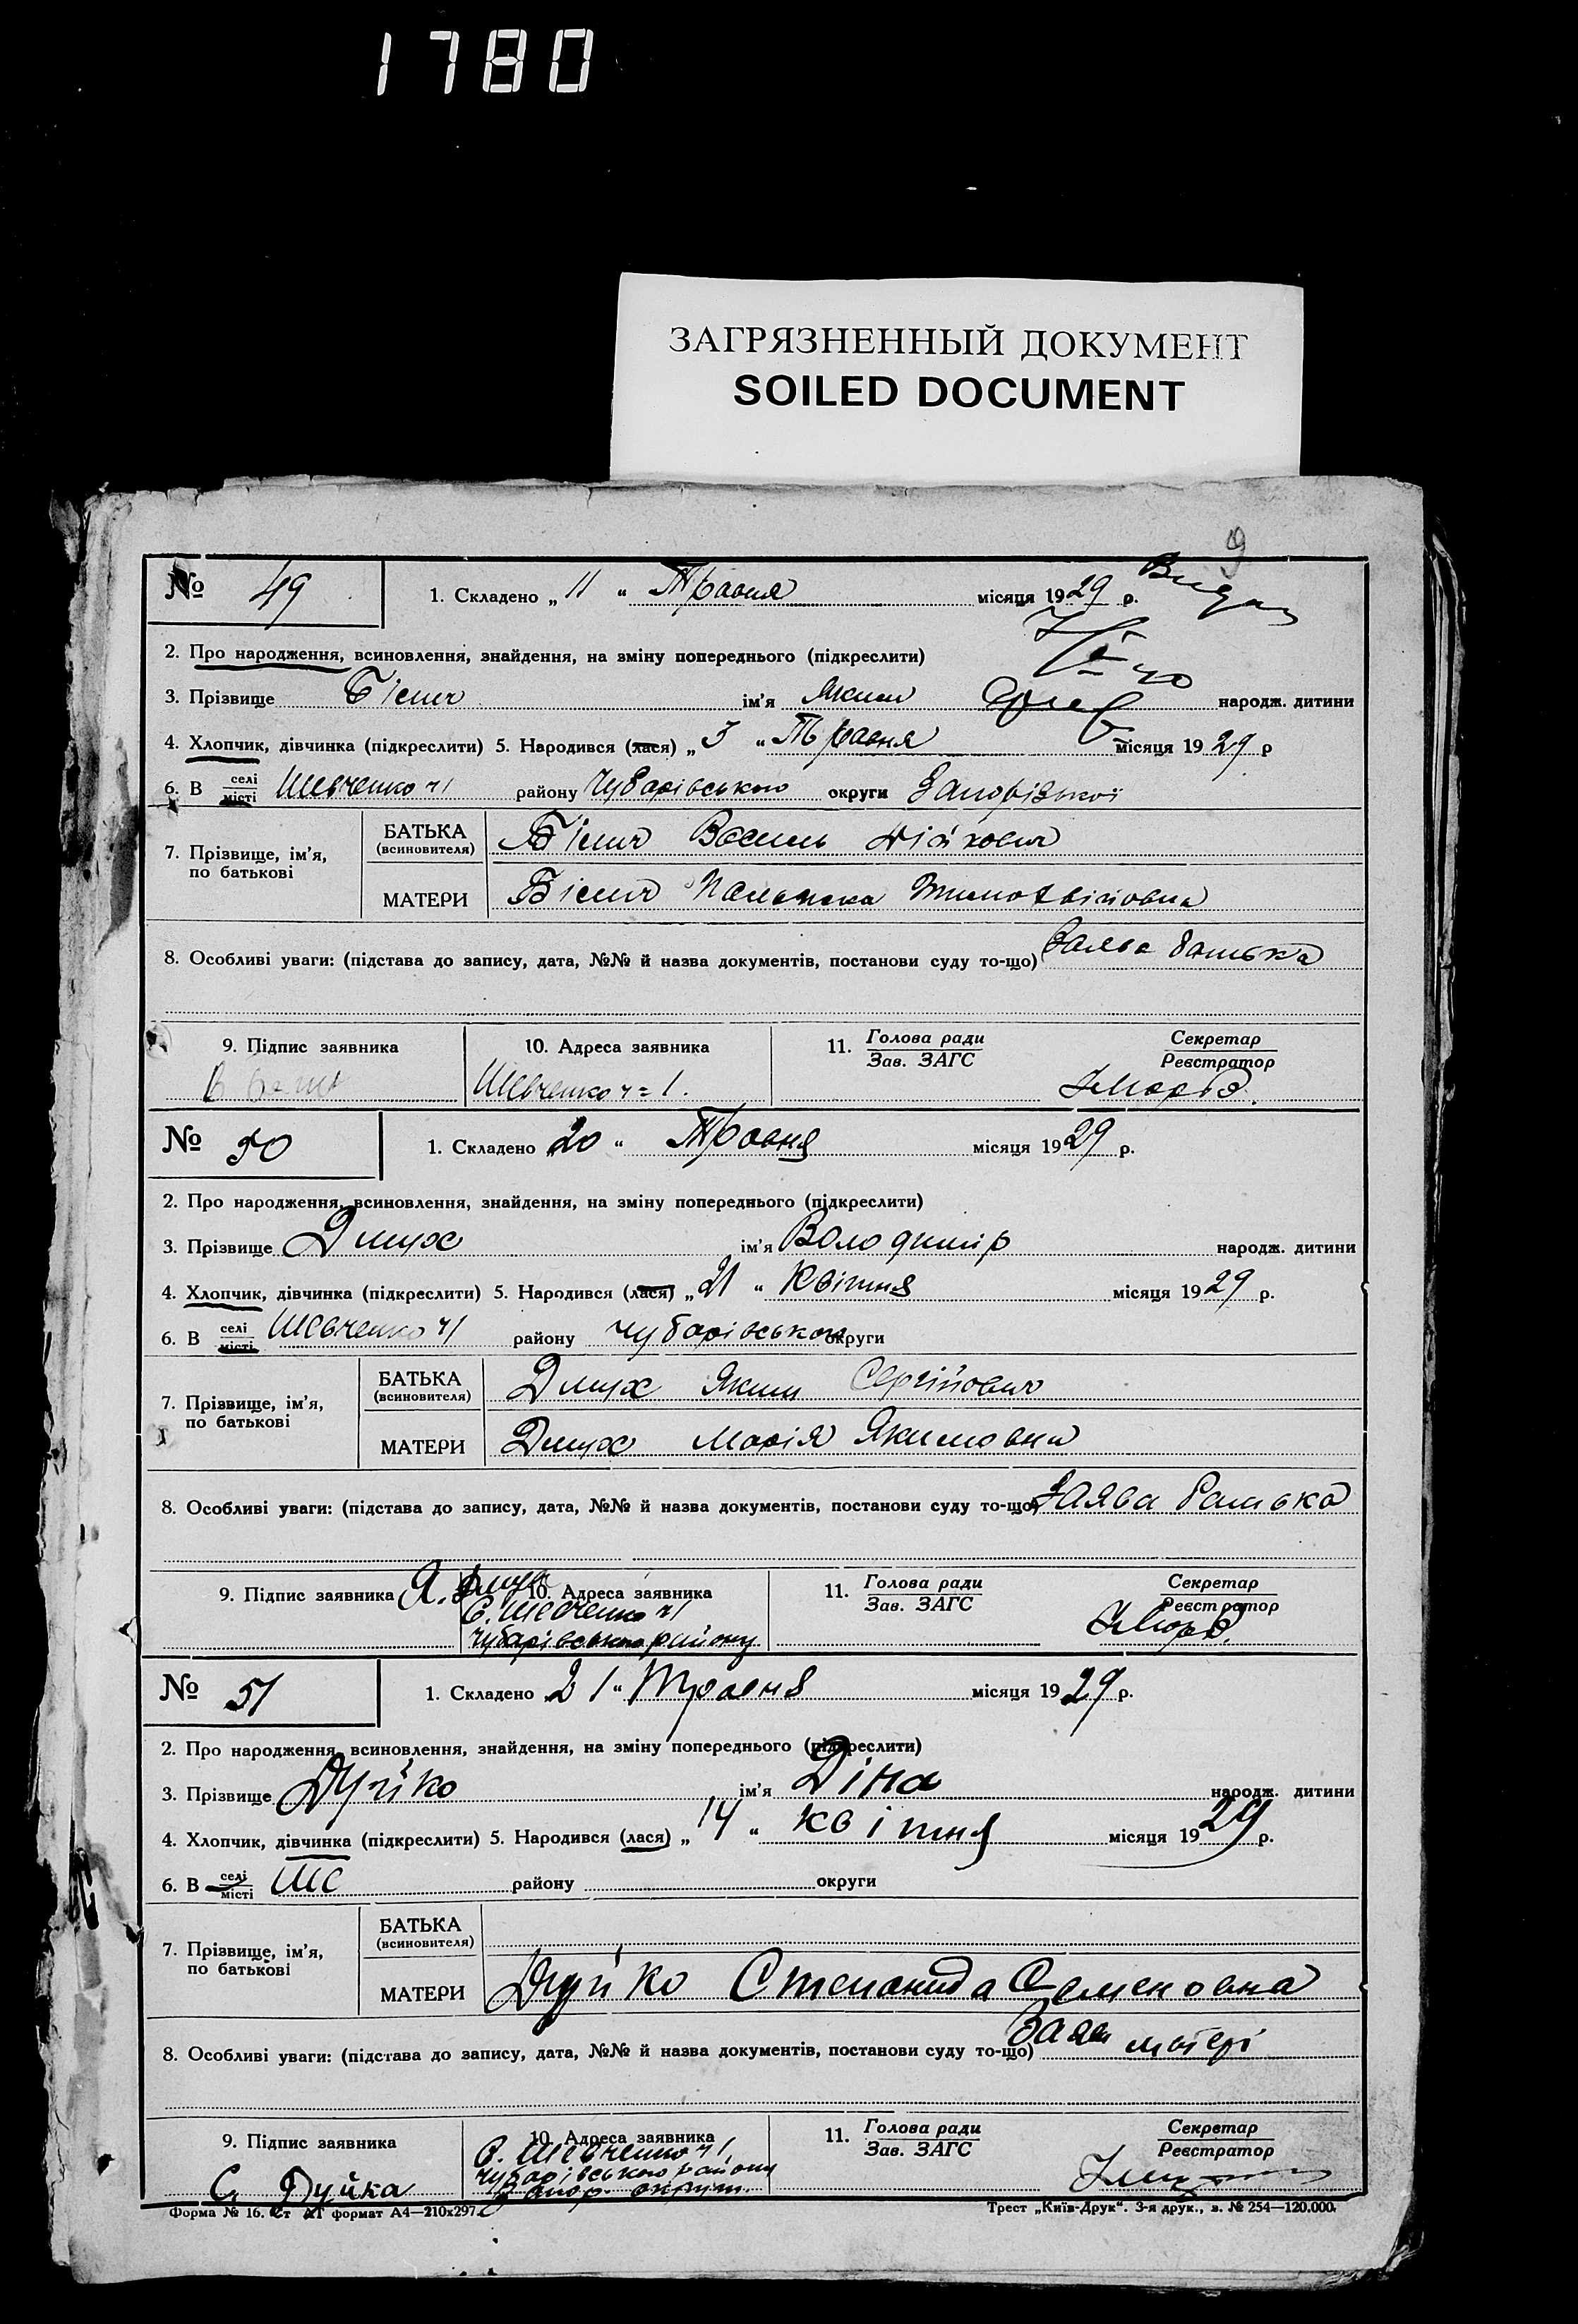 1780
ЗАГРЯЗНЕННЫЙ ДОКУМЕНТ
SOILED DOCUMENT
9
№ 49 1. Складено „ 11 “ Травня місяця 1929 р.
2. Про народження, всиновлення, знайдення, на зміну попереднього (підкреслити)
3. Прізвище Білич ім'я Яким народж. дитини
4. Хлопчик, дівчинка (підкреслити) 5. Народився (лася) „ 3 “ Травня місяця 1929 р
6. В селі місті Шевченко ч1 району Чубарівського округи Запорізької
7. Прізвище, ім'я, по батькові
БАТЬКА (всиновителя) Білич Василь
МАТЕРИ Білич
8. Особливі уваги: (підстава до запису, дата, №№ й назва документів, постанови суду то-що) Заява батька
9. Підпис заявника 10. Адреса заявника 11. Голова ради Зав. ЗАГС Секретар Реєстратор
Шевченко ч=1.
№ 50 1. Складено „20 “ Травня місяця 1929 р.
2. Про народження, всиновлення, знайдення, на зміну попереднього (підкреслити)
3. Прізвище Дмух ім'я Володимір народж. дитини
4. Хлопчик, дівчинка (підкреслити) 5. Народився (лася) „ 21 “ Квітня місяця 1929 р.
6. В селі місті Шевченко ч1 району Чубарівського округи
7. Прізвище, ім'я, по батькові
БАТЬКА (всиновителя) Дмух Яким Сергійович
МАТЕРИ Дмух Марія Якимовна
8. Особливі уваги: (підстава до запису, дата, №№ й назва документів, постанови суду то-що) Заява батька
9. Підпис заявника Я. Дмух 10. Адреса заявника 11. Голова ради Зав. ЗАГС Секретар Реєстратор
С. Шевченко ч1
Чубарівського району
№ 51 1. Складено „21“ Травня місяця 1929 р.
2. Про народження, всиновлення, знайдення, на зміну попереднього (підкреслити)
3. Прізвище Дуйко ім'я Діна народж. дитини
4. Хлопчик, дівчинка (підкреслити) 5. Народився (лася) „ 14 “ квітня місяця 1929 р.
6. В селі місті Ше району округи
7. Прізвище, ім'я, по батькові
БАТЬКА (всиновителя)
МАТЕРИ Дуйко Степанида Семеновна
8. Особливі уваги: (підстава до запису, дата, №№ й назва документів, постанови суду то-що) Заява матері
9. Підпис заявника 10. Адреса заявника 11. Голова ради Зав. ЗАГС Секретар Реєстратор
С. Шевченко ч1
Чубарівського району
С. Дуйка Запор. округи.
Форма № 16. Ст АТ формат А4—210х297. Трест „Київ-Друк“. 3-я друк., з. № 254—120.000.